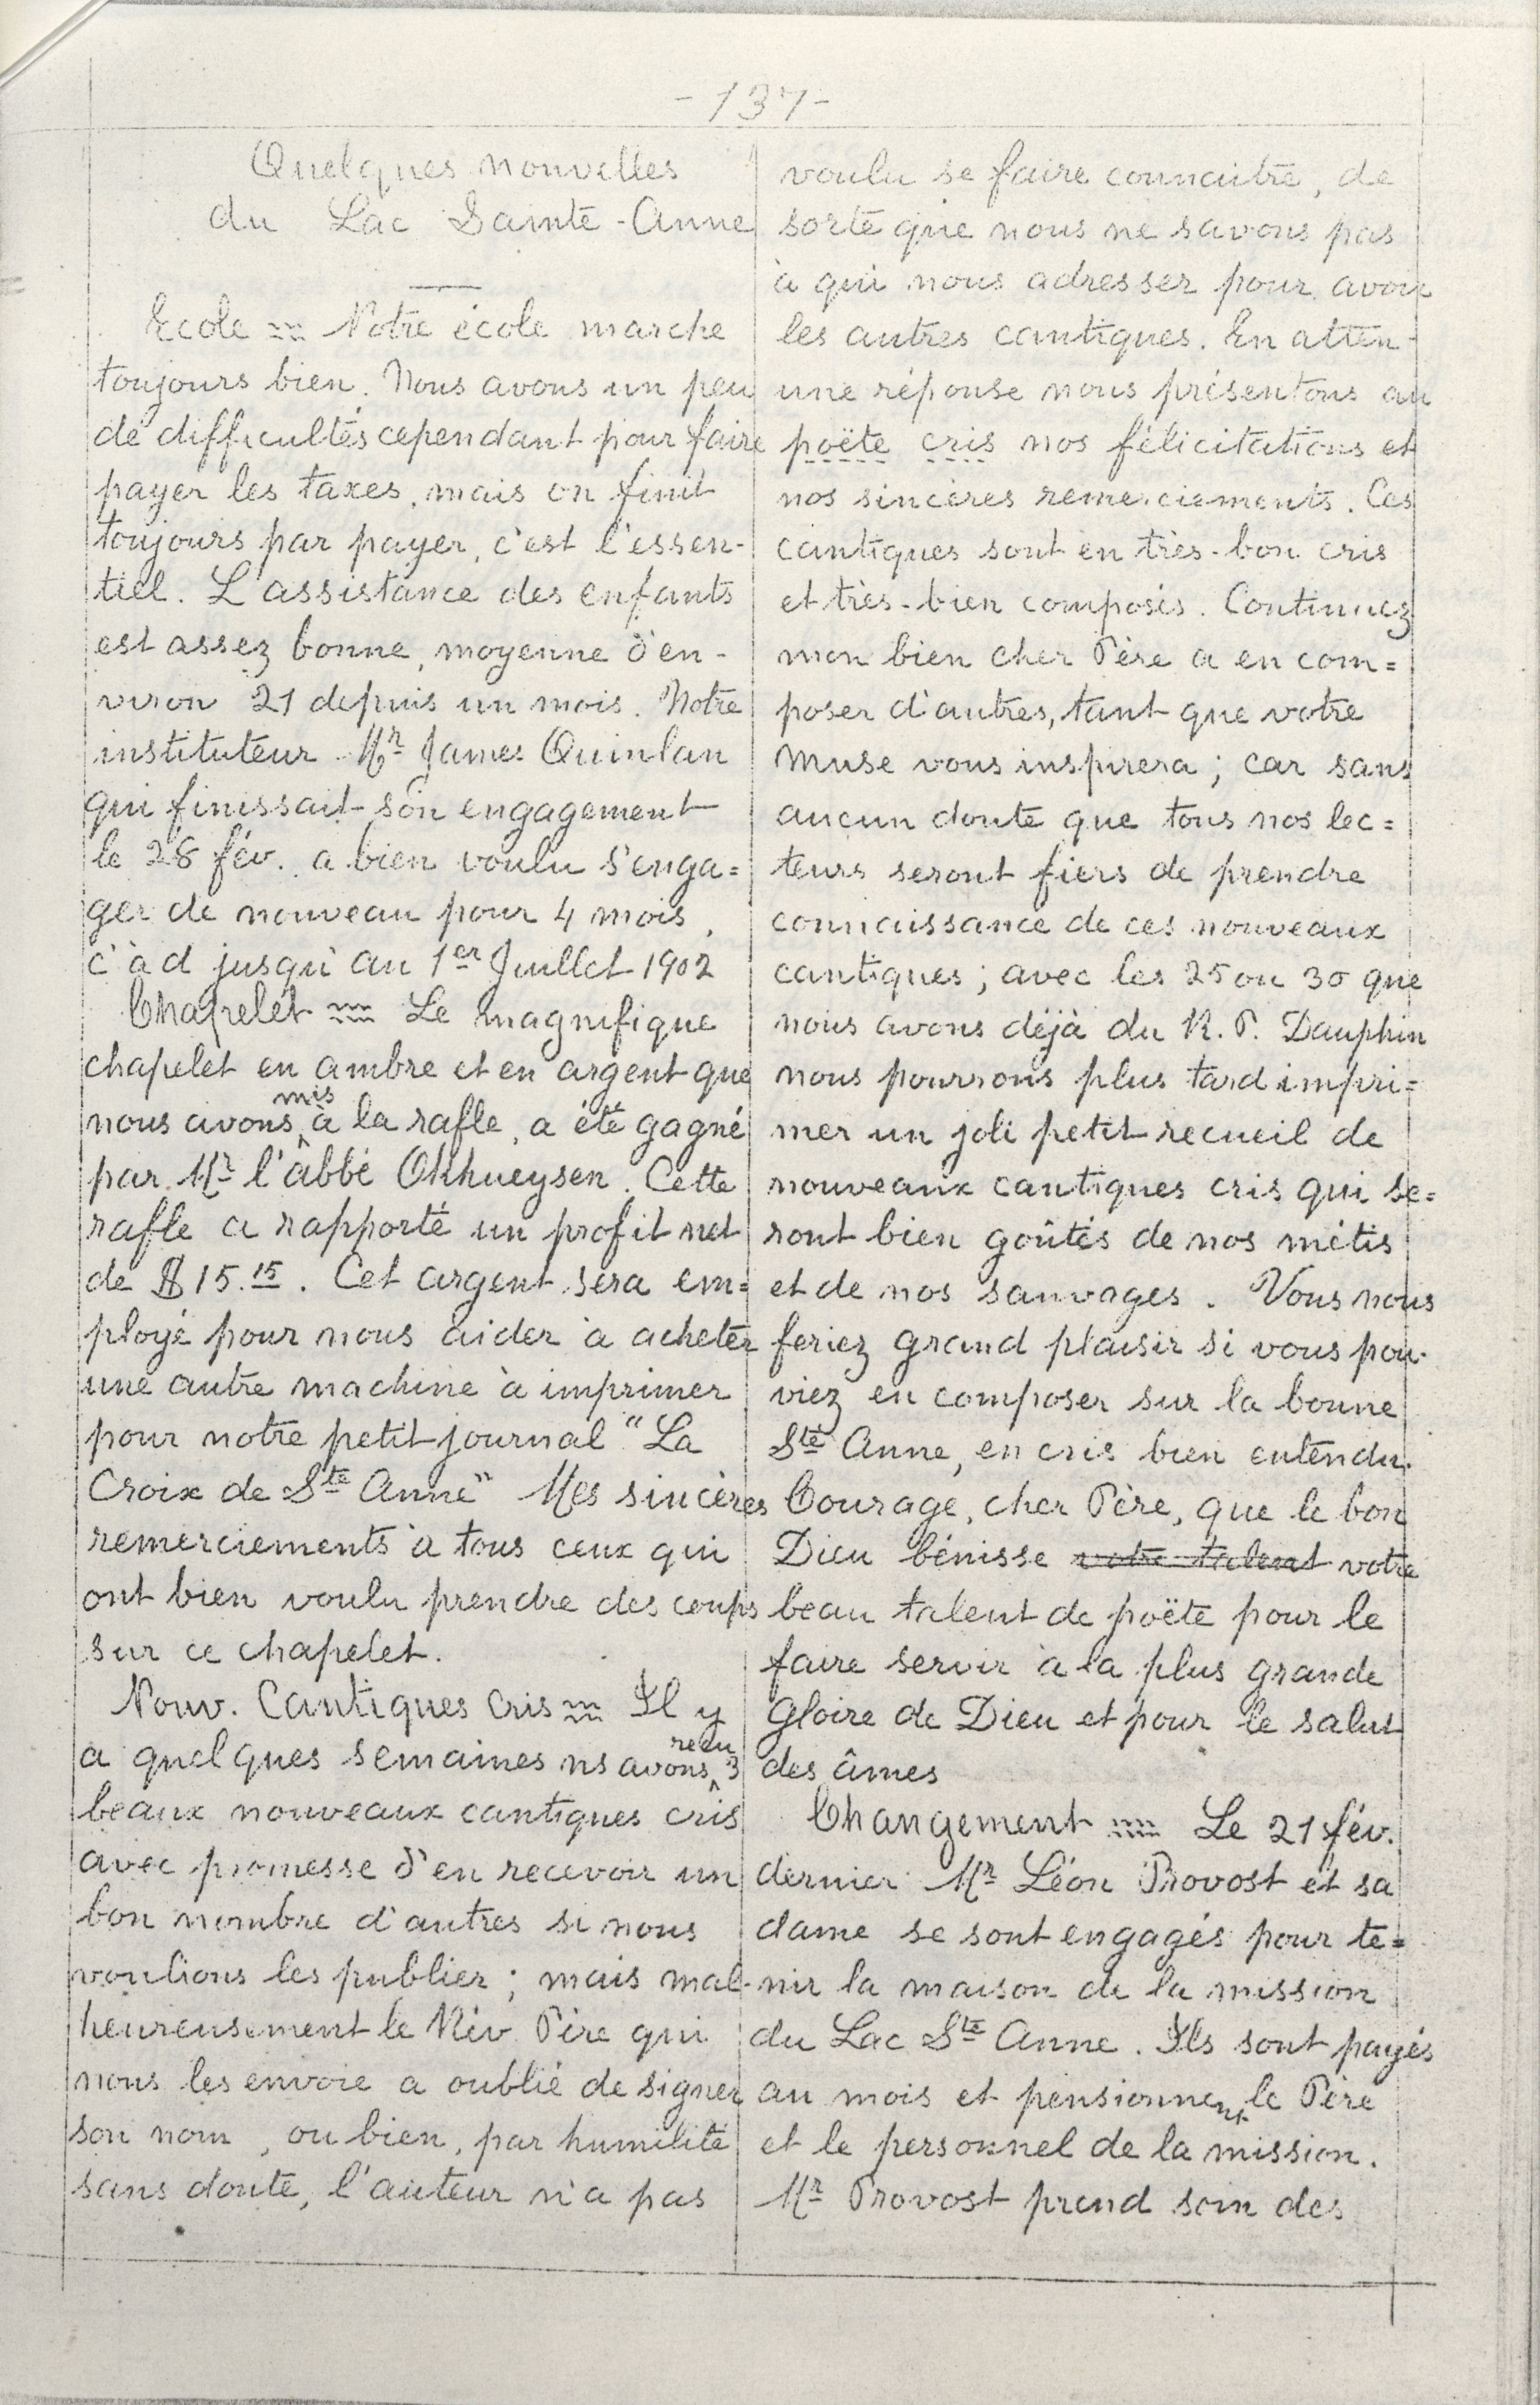 -137-
Quelques nouvelles
du Lac Sainte-Anne
Ecole = Notre école marche
toujours bien. Nous avons un peu
de difficultés cependant pour faire
payer les taxes, mais on finit
toujours par payer, c'est l'essen-
tiel. L'assistance des enfants
est assez bonne, moyenne d'en-
viron 21 depuis un mois. Notre
instituteur Mr James Quinlan
qui finissait son engagement
le 28 fév. a bien voulu s'enga=
ger de nouveau pour 4 mois,
c'àd jusqu'au 1er Juillet 1902
Chapelet = Le magnifique
chapelet en ambre et en argent que
nous avons mis à la rafle, a été gagné
par Mr l'abbé Okhueysen. Cette
rafle a rapporté un profit net
de $15.15. Cet argent sera em=
ployé pour nous aider à acheter
une autre machine à imprimer
pour notre petit journal "La
Croix de Ste Anne" Mes sincères
remerciements à tous ceux qui
ont bien voulu prendre des coups
sur ce chapelet.
Nouv. Cantiques Cris = Il y
a quelques semaines ns avons reçu 3
beaux nouveaux cantiques cris
avec promesse d'en recevoir un
bon nombre d'autres si nous
voulions les publier; mais mal-
heureusement le Rév. Père qui
nous les envoie a oublié de signer
son nom, ou bien, par humilité
sans doute, l'auteur n'a pas
voulu se faire connaitre, de
sorte que nous ne savons pas
à qui nous adresser pour avoir
les autres cantiques. En atten-
une réponse nous présentons au
poëte cris nos félicitations et
nos sincères remerciements. Ces
cantiques sont en très-bon cris
et très-bien composés. Continuez
mon bien cher Père a en com=
poser d'autres, tant que votre
Muse vous inspirera; car sans
aucun doute que tous nos lec=
teurs seront fiers de prendre
connaissance de ces nouveaux
cantiques; avec les 25 ou 30 que
nous avons déjà du R. P. Dauphin
nous pourrons plus tard impri=
mer un joli petit recueil de
nouveaux cantiques cris qui se=
ront bien goûtés de nos métis
et de nos sauvages. Vous nous
feriez grand plaisir si vous pou-
viez en composer sur la bonne
Ste Anne, en cris bien entendu.
Courage, cher Père, que le bon
Dieu bénisse votre talent votre
beau talent de poëte pour le
faire servir à la plus grande
Gloire de Dieu et pour le salut
des âmes
Changement = Le 21 fév.
dernier Mr Léon Provost et sa
dame se sont engagés pour te=
nir la maison de la mission
du Lac Ste Anne. Ils sont payés
au mois et pensionnent le Père
et le personnel de la mission.
Mr Provost prend soin des